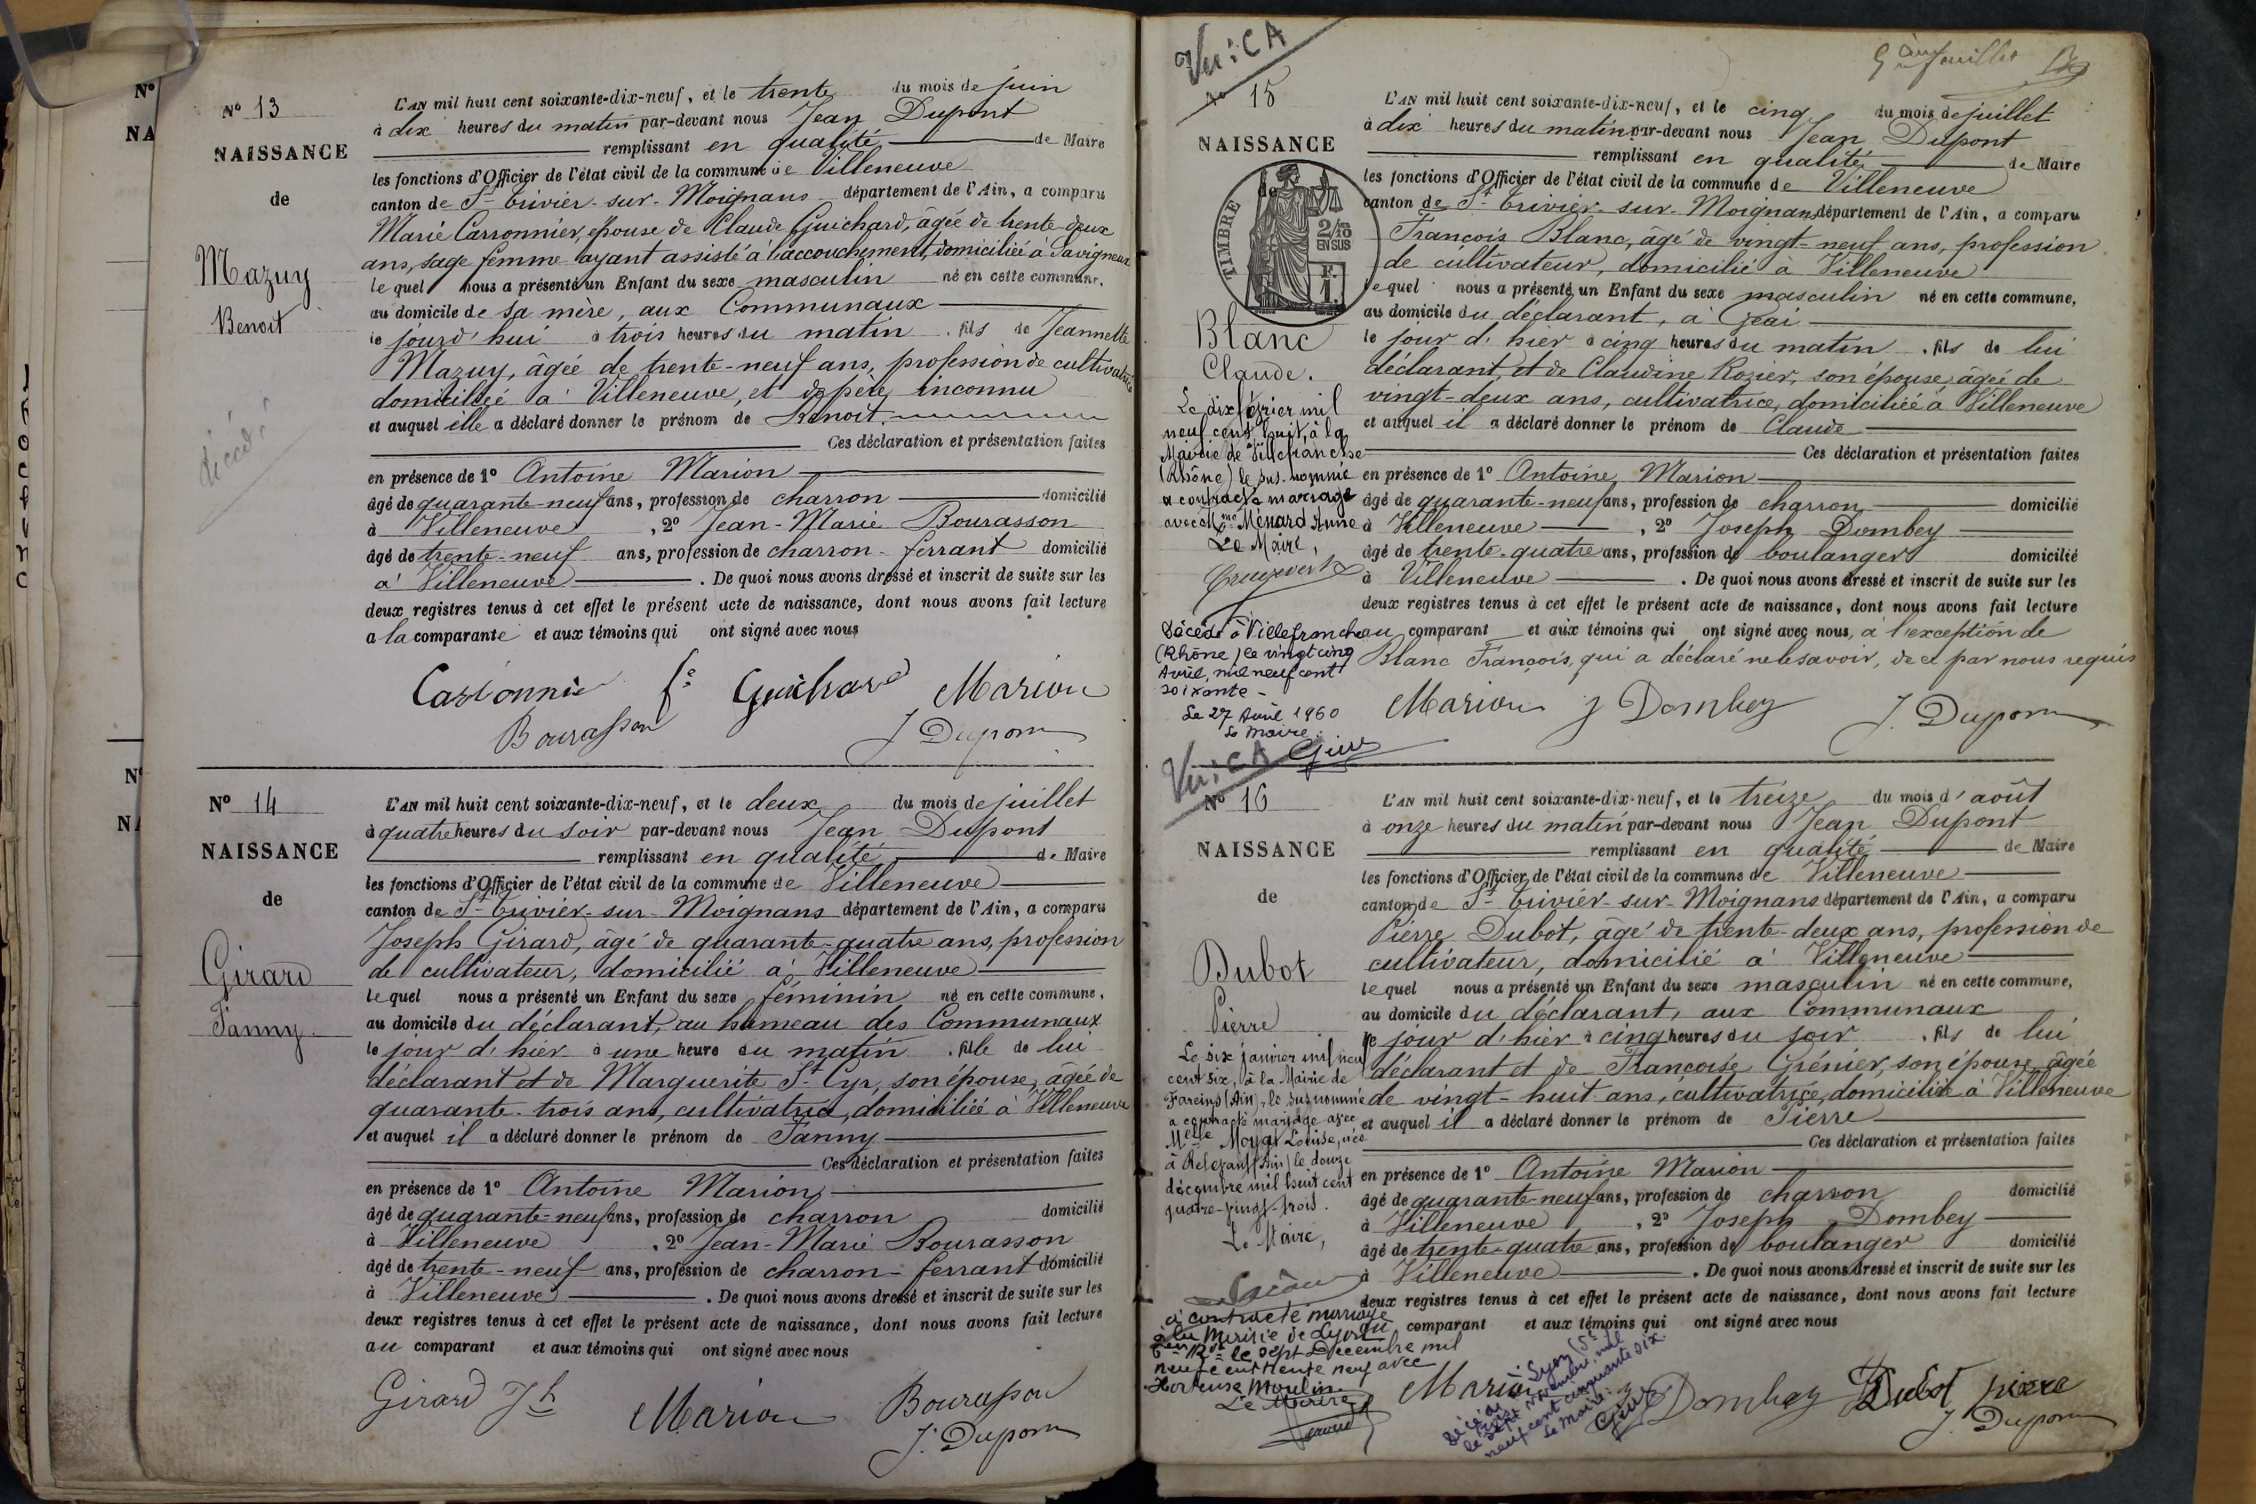 N° 13
NAISSANCE
de
Mazuy
Benoit
décédé
L'AN mil huit cent soixante-dix-neuf, et le trente du mois de juin
à dix heures du matin par-devant nous Jean Dupont
remplissant en qualité de Maire
les fonctions d'Officier de l'état civil de la commune de Villeneuve
canton de St Trivier-sur-Moignans département de l'Ain, a comparu
Marie Carronnier, épouse de Claude Guichard, âgée de trente-deux
ans, sage femme ayant assisté à l'accouchement, domiciliée à Savigneux
le quel nous a présenté un Enfant du sexe masculin né en cette commune,
au domicile de sa mère, aux Communaux
le jourd'hui à trois heures du matin, fils de Jeannette
Mazuy, âgée de trente-neuf ans, profession de cultivatrice
domiciliée à Villeneuve, et de père inconnu
et auquel elle a déclaré donner le prénom de Benoit.
Ces déclaration et présentation faites
en présence de 1° Antoine Marion
âgé de quarante-neuf ans, profession de charron domicilié
à Villeneuve, 2° Jean-Marie Bourasson
âgé de trente-neuf ans, profession de charron-ferrant domicilié
à Villeneuve. De quoi nous avons dressé et inscrit de suite sur les
deux registres tenus à cet effet le présent acte de naissance, dont nous avons fait lecture
a la comparante et aux témoins qui ont signé avec nous
Carronnier fe Guichard Marion
Bourasson J Dupont
N° 14
NAISSANCE
de
Girard
Fanny
L'AN mil huit cent soixante-dix-neuf, et le deux du mois de juillet
à quatre heures du soir par-devant nous Jean Dupont
remplissant en qualité de Maire
les fonctions d'Officier de l'état civil de la commune de Villeneuve
canton de St Trivier-sur-Moignans département de l'Ain, a comparu
Joseph Girard, âgé de quarante-quatre ans, profession
de cultivateur, domicilié à Villeneuve
le quel nous a présenté un Enfant du sexe féminin né en cette commune,
au domicile du déclarant, au hameau des Communaux
le jour d'hier à une heure du matin, fille de lui
déclarant et de Marguerite St Cyr, son épouse, âgée de
quarante-trois ans, cultivatrice, domiciliée à Villeneuve
et auquel il a déclaré donner le prénom de Fanny
Ces déclaration et présentation faites
en présence de 1° Antoine Marion
âgé de quarante-neuf ans, profession de charron domicilié
à Villeneuve, 2° Jean-Marie Bourasson
âgé de trente-neuf ans, profession de charron-ferrant domicilié
à Villeneuve. De quoi nous avons dressé et inscrit de suite sur les
deux registres tenus à cet effet le présent acte de naissance, dont nous avons fait lecture
au comparant et aux témoins qui ont signé avec nous
Girard Jh Marion Bourasson
J. Dupont
N° 15
NAISSANCE
de
TIMBRE
2/10 EN SUS
Blanc
Claude.
Le dix février mil
neuf cent huit, à la
Mairie de Villefranche
(Rhône) le sus-nommé
a contracté mariage
avec Mme Ménard Anne
Le Maire,
Décédé à Villefranche
(Rhône) le vingt cinq
Avril, mil neuf cent
soixante -
Le 27 Avril 1960
Le Maire :
L'AN mil huit cent soixante-dix-neuf, et le cinq du mois de juillet
à dix heures du matin par-devant nous Jean Dupont
remplissant en qualité de Maire
les fonctions d'Officier de l'état civil de la commune de Villeneuve
canton de St Trivier-sur-Moignans département de l'Ain, a comparu
François Blanc, âgé de vingt-neuf ans, profession
de cultivateur, domicilié à Villeneuve
le quel nous a présenté un Enfant du sexe masculin né en cette commune,
au domicile du déclarant, à Geai
le jour d'hier à cinq heures du matin, fils de lui
déclarant, et de Claudine Rozier, son épouse, âgée de
vingt-deux ans, cultivatrice, domiciliée à Villeneuve
et auquel il a déclaré donner le prénom de Claude
Ces déclaration et présentation faites
en présence de 1° Antoine Marion
âgé de quarante-neuf ans, profession de charron domicilié
à Villeneuve, 2° Joseph Dombey
âgé de trente-quatre ans, profession de boulanger domicilié
à Villeneuve. De quoi nous avons dressé et inscrit de suite sur les
deux registres tenus à cet effet le présent acte de naissance, dont nous avons fait lecture
au comparant et aux témoins qui ont signé avec nous, à l'exception de
Blanc François, qui a déclaré ne le savoir, de ce par nous requis
Marion J Dombey J. Dupont
N° 16
NAISSANCE
de
Dubot
Pierre
Le six janvier mil neuf
cent six, à la Mairie de
Fareins (Ain), le susnommé
a contracté mariage avec
Melle Moyat Louise, née
le douze
décembre mil huit cent
quatre-vingt-trois.
Le Maire,
a contracté mariage
à la Mairie de Lyon
le sept Décembre mil
neuf cent trente neuf avec
Hortense Moulin
Le Maire
L'AN mil huit cent soixante-dix-neuf, et le treize du mois d'août
à onze heures du matin par-devant nous Jean Dupont
remplissant en qualité de Maire
les fonctions d'Officier de l'état civil de la commune de Villeneuve
canton de St Trivier-sur-Moignans département de l'Ain, a comparu
Pierre Dubot, âgé de trente-deux ans, profession de
cultivateur, domicilié à Villeneuve
le quel nous a présenté un Enfant du sexe masculin né en cette commune,
au domicile du déclarant, aux Communaux
le jour d'hier à cinq heures du soir, fils de lui
déclarant et de Françoise Grénier, son épouse, âgée
de vingt-huit ans, cultivatrice, domiciliée à Villeneuve
et auquel il a déclaré donner le prénom de Pierre
Ces déclaration et présentation faites
en présence de 1° Antoine Marion
âgé de quarante-neuf ans, profession de charron domicilié
à Villeneuve, 2° Joseph Dombey
âgé de trente-quatre ans, profession de boulanger domicilié
à Villeneuve. De quoi nous avons dressé et inscrit de suite sur les
deux registres tenus à cet effet le présent acte de naissance, dont nous avons fait lecture
au comparant et aux témoins qui ont signé avec nous
Marion J Dombey Dubot pierre
J. Dupont
Décédé à Lyon (5e
le sept novembre mil
neuf cent cinquante six.
Le Maire :